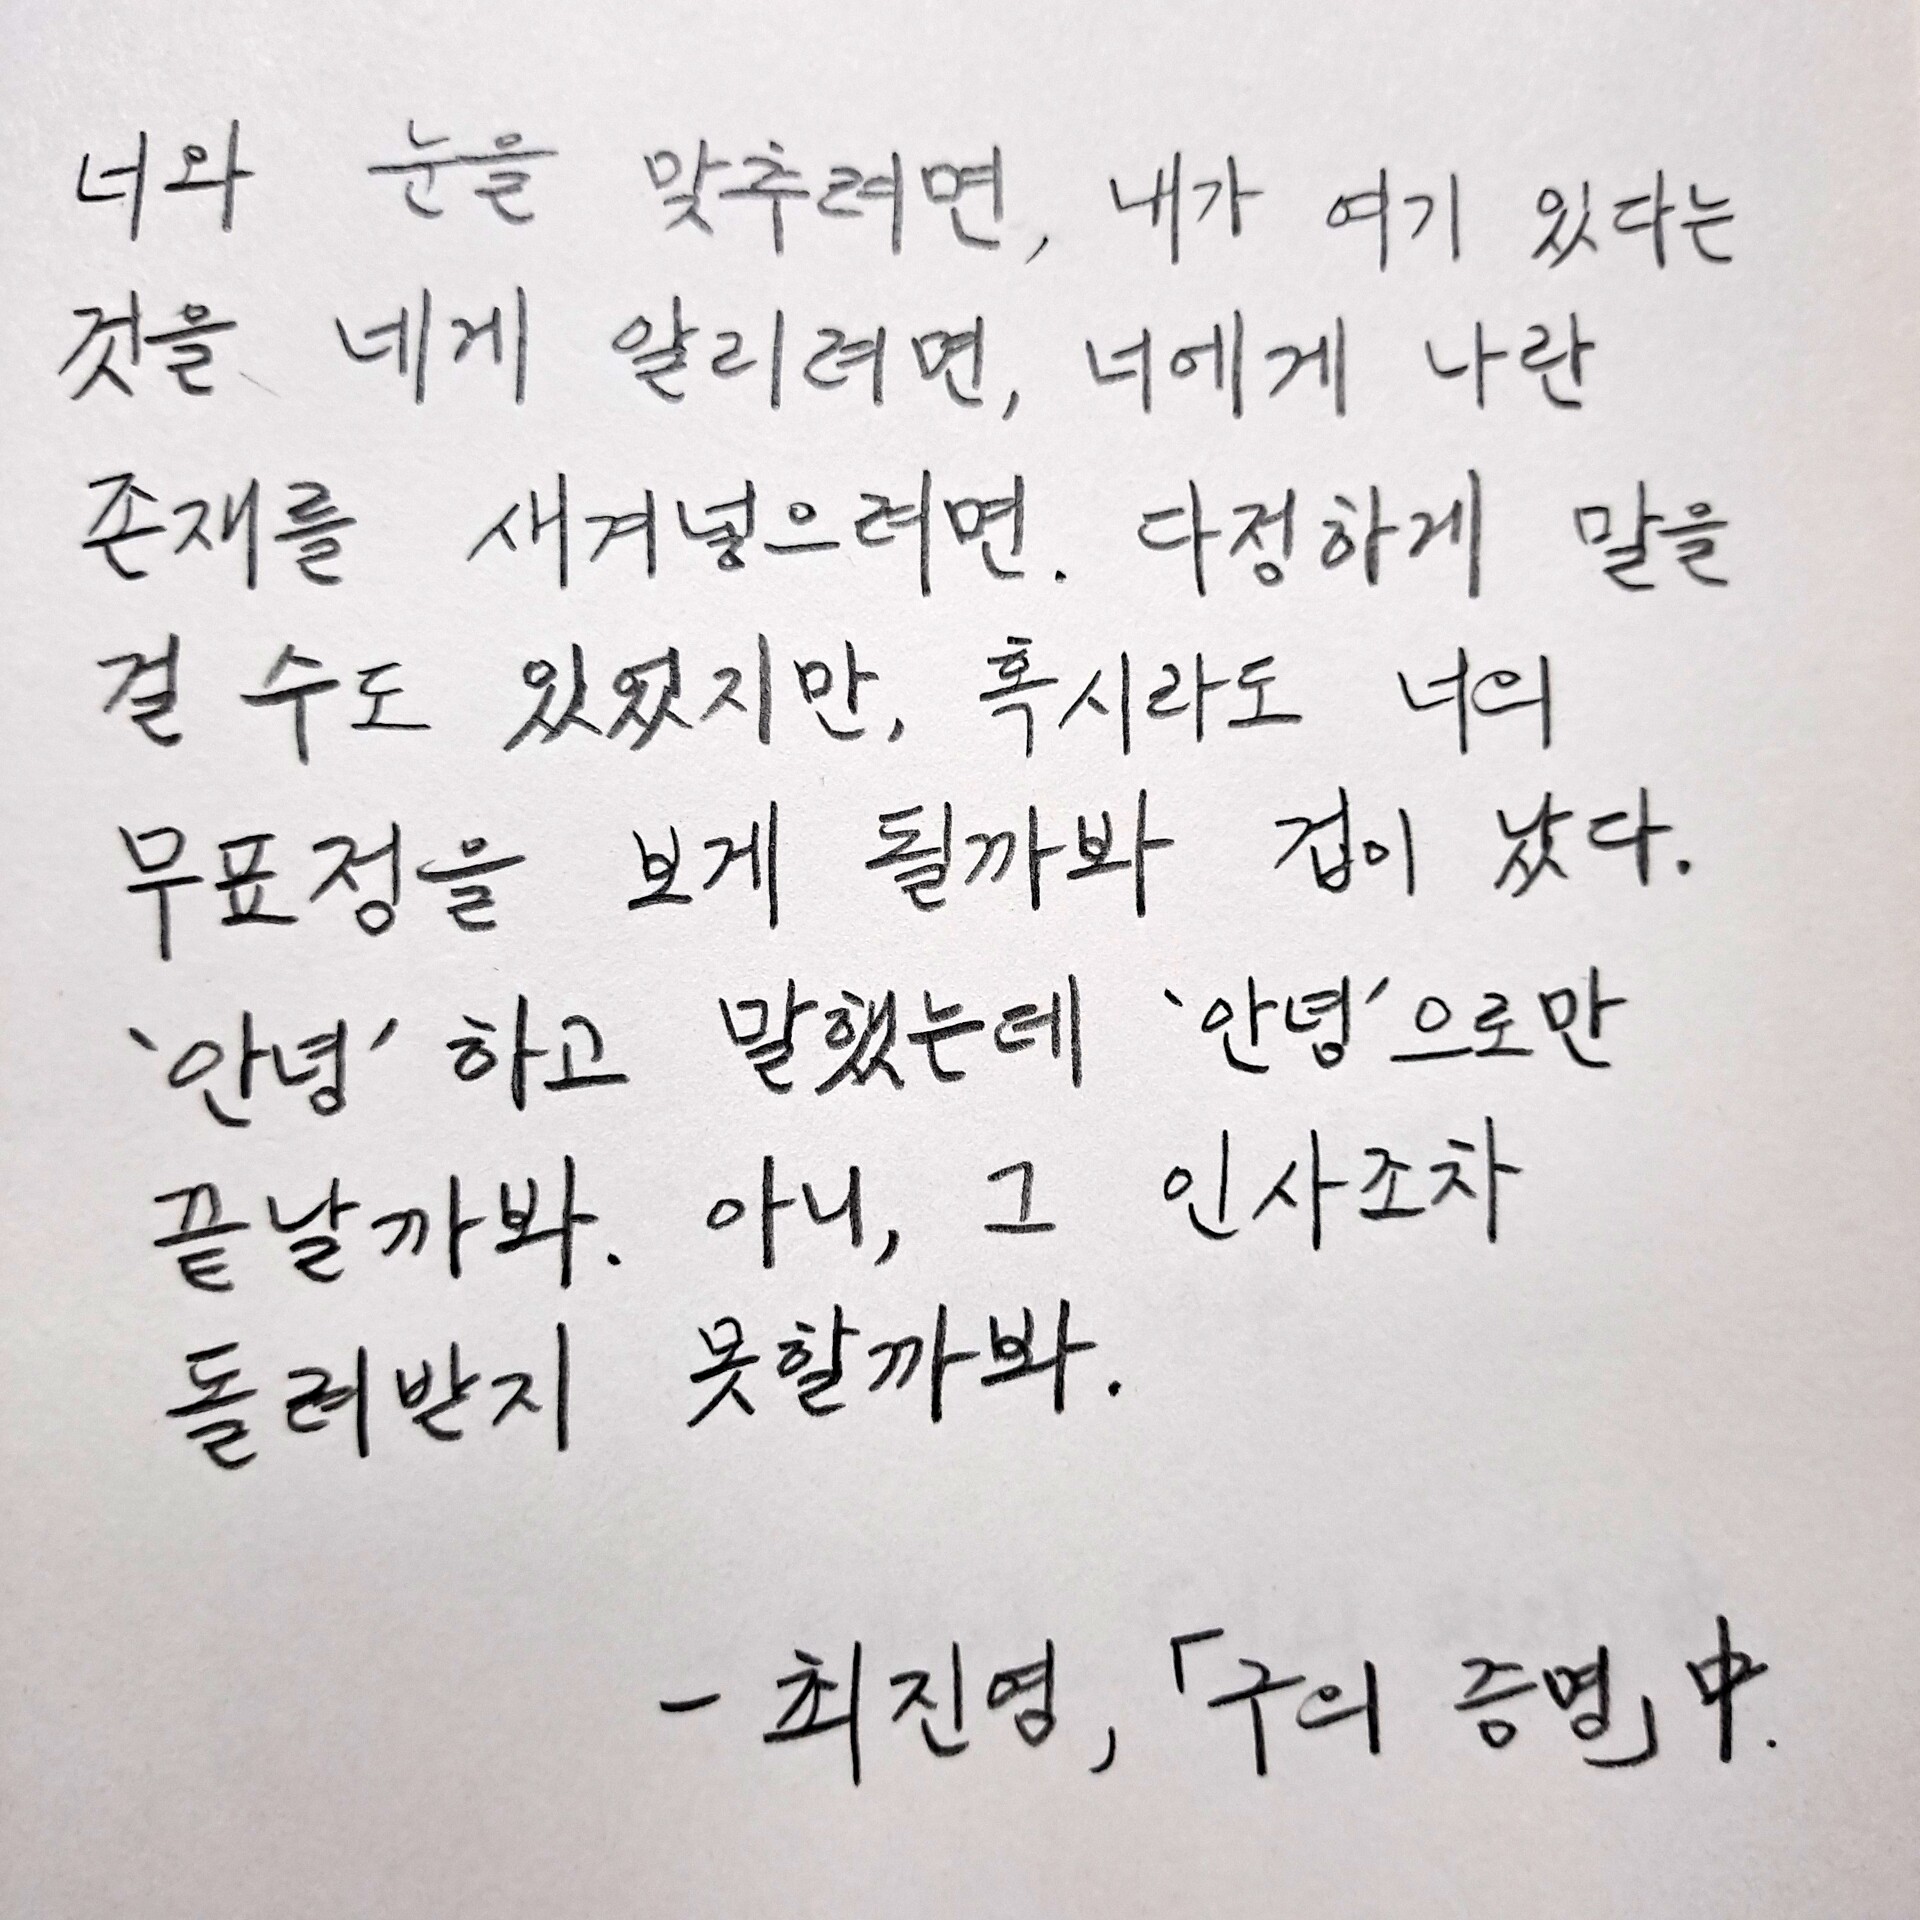 너와 눈을 맞추려면, 내가 여기 있다는
것을 네게 알리려면, 너에게 나란
존재를 새겨넣으려면. 다정하게 말을
걸 수도 있었지만, 혹시라도 너의
무표정을 보게 될까봐 겁이 났다.
'안녕' 하고 말했는데 '안녕'으로만
끝날까봐. 아니, 그 인사조차
돌려받지 못할까봐.
- 최진영, 「구의 증명」 中.